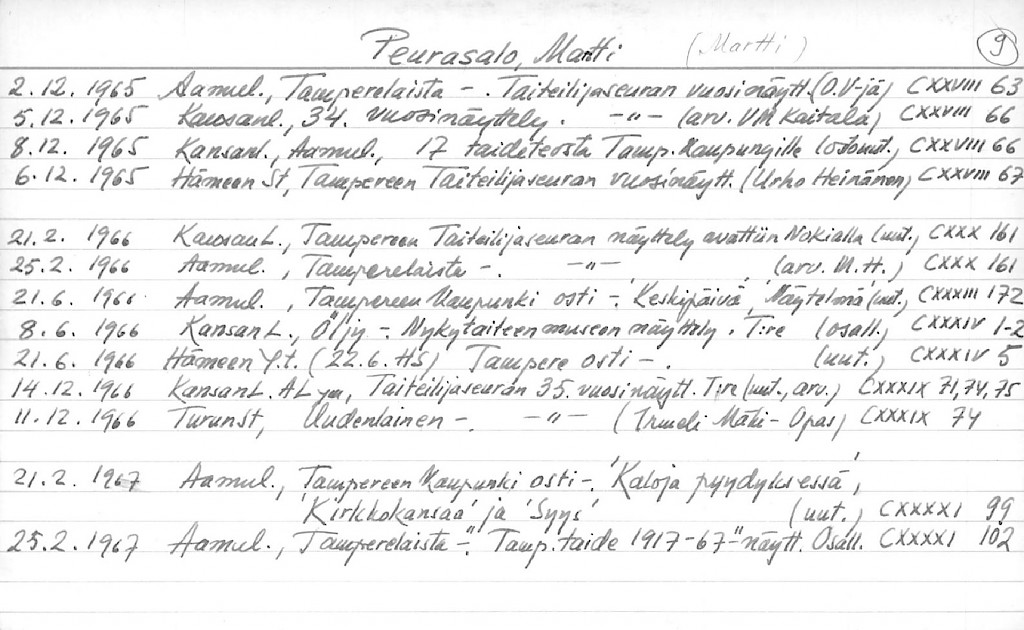 Peurasalo, Martti (Martti) 9
2.12.1965 Aamul., Tamperelaista -. Taiteilijaseuran vuosinäytt. (O.V-jä) CXXVIII 63
5.12.1965 Kansanl., 34. vuosinäyttely. -"- (arv. VM Kaitala) CXXVIII 66
8.12.1965 Kansanl., Aamul., 17 taideteosta Tamp. Kaupungille (ostouut.) CXXVIII 66
6.12.1965 Hämeen St, Tampereen Taiteilijaseuran vuosinäytt. (Urho Heinänen) CXXVIII 67
21.2. 1966 KansanL., Tampereen Taiteilijaseuran näyttely avattiin Nokialla (uut.) CXXX 161
25.2. 1966 Aamul., Tamperelaista -. -"- (arv. M.H.) CXXX 161
21.6. 1966 Aamul., Tampereen Kaupunki osti -. 'Keskipäivä', 'Näytelmä' (uut.) CXXXIII 172
8.6. 1966 KansanL., Öljy - Nykytaiteen museon näyttely. T:re (osall.) CXXXIV 1-2
21.6. 1966 Hämeen Yt. (22.6. HS) Tampere osti -. (uut.) CXXXIV 5
14.12.1966 KansanL. AL ym, Taiteilijaseuran 35. vuosinäytt. T:re (uut., arv.) CXXXIX 71,74,75
11.12.1966 TurunSt, Uudenlainen -. -"- (Irmeli Mäki-Opas) CXXXIX 74
21.2. 1967 Aamul., Tampereen Kaupunki osti -. 'Kaloja pyydyksessä',
'Kirkkokansaa' ja 'Syys' (uut.) CXXXXI 99
25.2.1967 Aamul., Tamperelaista -. "Tamp. taide 1917-67-" näytt. Osall. CXXXXI 102